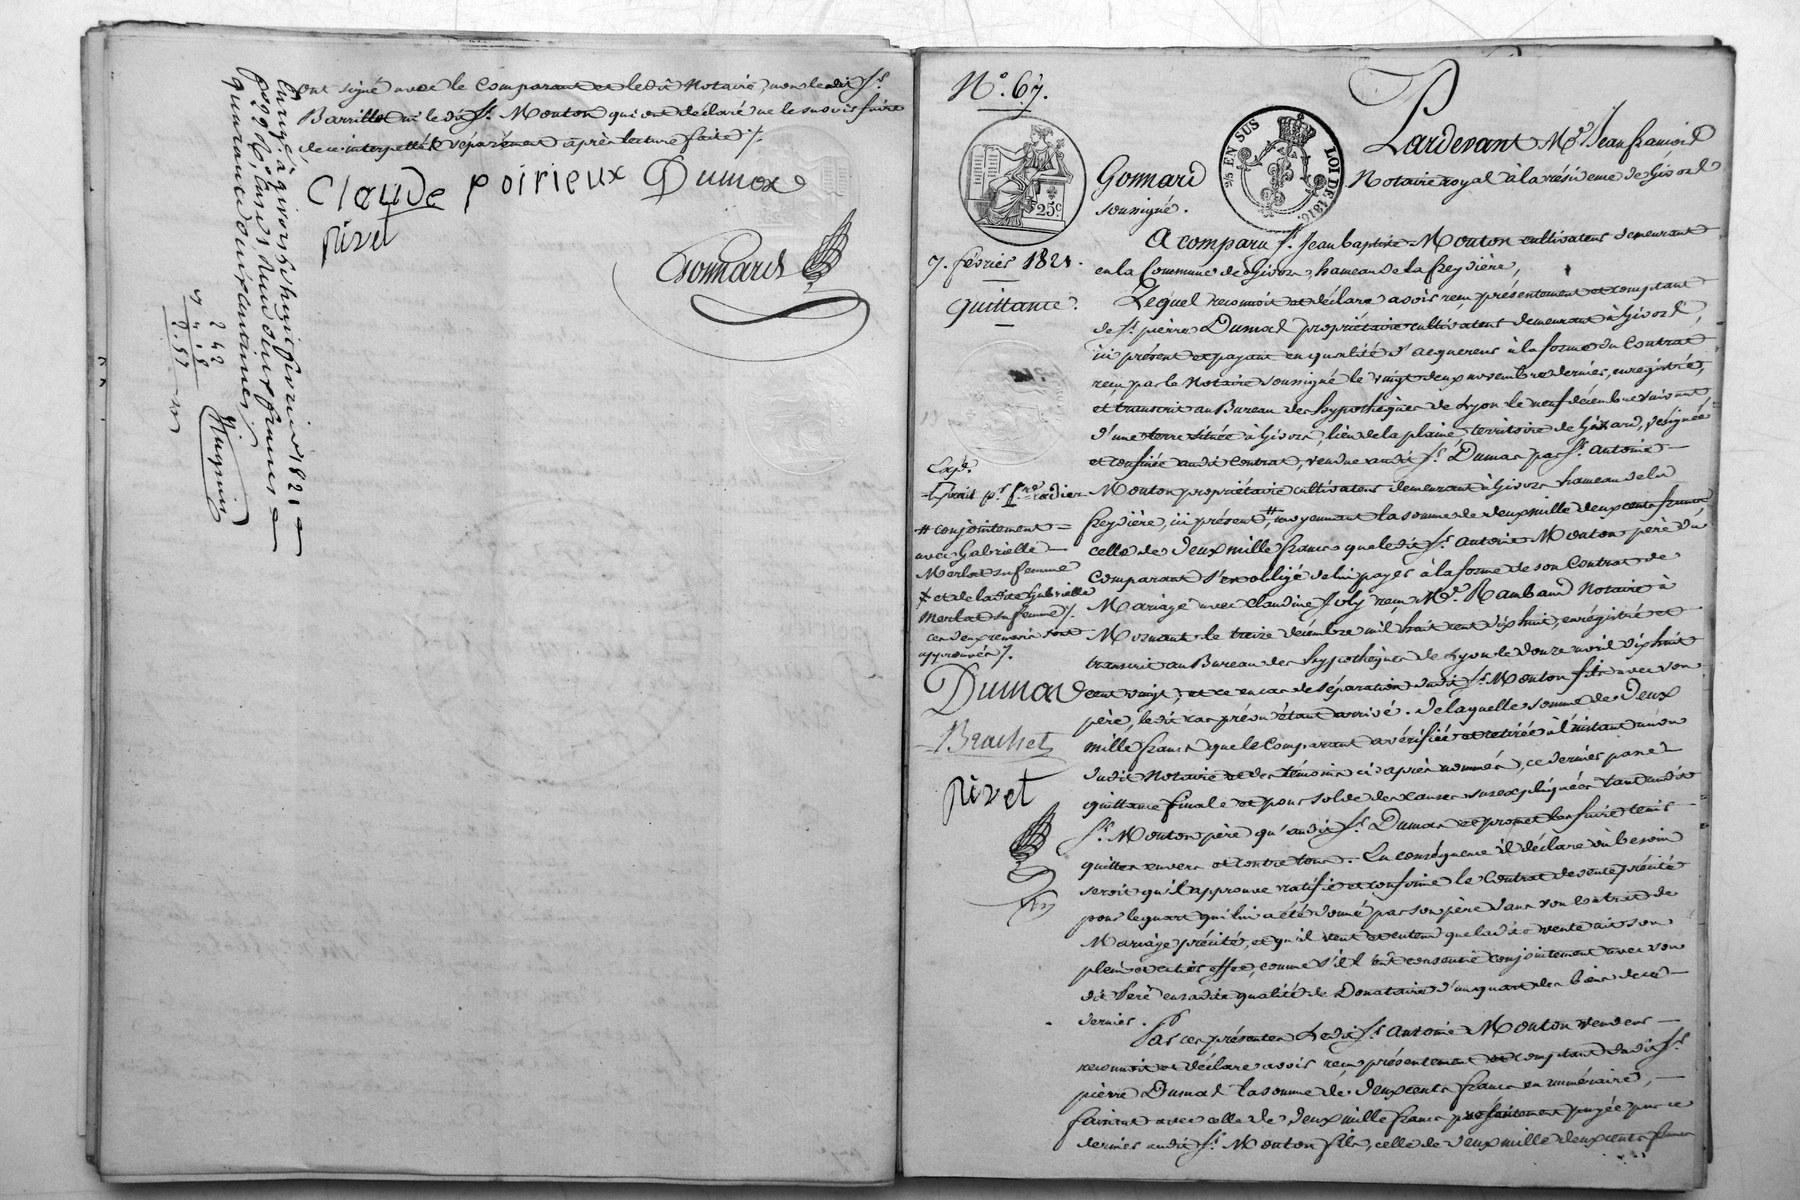 ont signé avec le Comparant et ledit Notaire, non ledit Sr
Barrillot ni le dit Sr Mouton qui ont déclaré ne le savoir faire
de ce interpellés séparément après lecture faite ./.
Claude poirieux Dumas
Rivet
Gonnard
Enrégé à givors le huit février 1821
deux francs
quinrance deux centimes
2 42
N.o 67.
25c
25 EN SUS
LOI DE 1816.
7. février 1821.
Quittance.
Pardevant Me Jean francois
Gonnard Notaire royal à la résidence de Givors
soussigné.
A comparu Sr Jean baptiste Mouton cultivateur demeurant
en la Commune de Givors, hameau de la freydière,
Lequel reconnoit et déclare avoir reçu présentement et comptant
de Sr pierre Dumas propriétaire cultivateur demeurant à Givors,
ici présent et payant en qualité d'acquereur à la forme du Contrat
reçu par le Notaire soussigné le vingt deux novembre dernier, enregistré,
et transcrit au Bureau des hypothèques de Lyon le neuf décembre suivant,
d'une terre située à Givors, lieu de la plaine, territoire de Gizard, désignée
et confinée audit Contrat, vendue audit Sr Dumas par Sr Antoine
Mouton propriétaire cultivateur demeurant à Givors hameau de la
freydière, ici présent #, moyennant la somme de deux mille deux cents francs
celle de deux mille francs que ledit Sr Antoine Mouton père du
Comparant s'est obligé de lui payer à la forme de son Contrat de
Mariage avec Claudine Joly reçu Me Raubaud Notaire à
Mornant le treize décembre mil huit cent dix huit, enrégistré et
transcrit au Bureau des hypothèques de Lyon le douze avril dix huit
cent vingt, et ce en cas de séparation dudit Sr Mouton fils avec son
père, ledit cas prévu étant arrivé. De laquelle somme de Deux
mille francs que le Comparant a vérifiée et retirée à l'instant au vu
dudit Notaire et des témoins ci après nommés, ce dernier passe
quittance finale et pour solde des causes susexpliquées tant audit
Sr Mouton père qu'audit Sr Dumas et promet les faire tenir
quittes envers et contre tous. En conséquence il déclare où besoin
seroit qu'il approuve ratifie et confirme le Contrat de vente précité
pour le quart qui lui a été donné par son père dans son contrat de
Mariage précité, et qu'il veut et entend que ladite vente ait son
plein et entier effet, comme s'il l'eût consentie conjointement avec son
dit Père en sadite qualité de Donataire d'un quart des biens de ce
dernier.
Par ces présentes Ledit Sr Antoine Mouton vendeur
reconnoit et déclare avoir reçu présentement et comptant dudit Sr
pierre Dumas la somme de deux cents francs en numéraire,
faisant avec celle de deux mille francs présentement payée par ce
dernier audit Sr Mouton fils, celle de deux mille deux cents francs
Expé.
# conjointement
avec Gabrielle
Merlat sa femme
+ et de ladite Gabrielle
Merlat sa femme /.
ces deux renvois sont
approuvés /.
Dumas
Brachet
Rivet